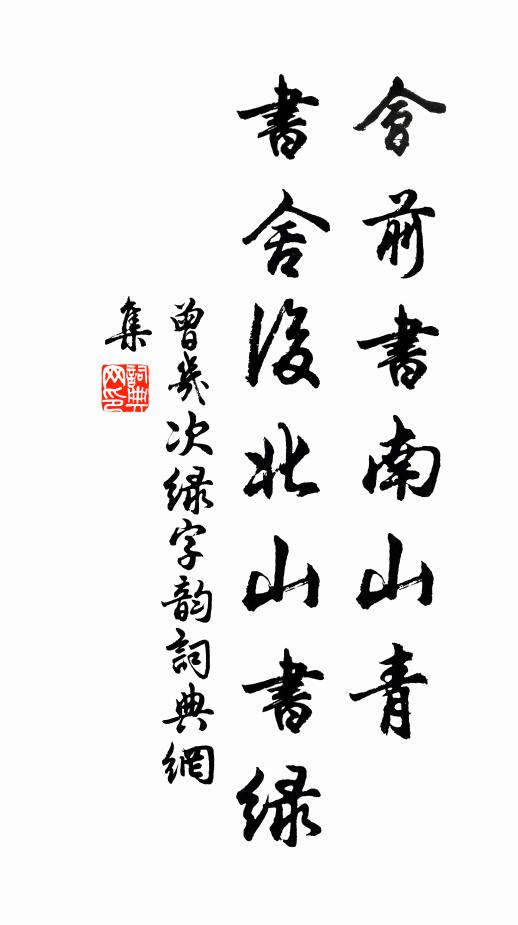 會前書南山青
書舍後北山書綠
曾幾次綠字韵詞典網
集
詞典网印